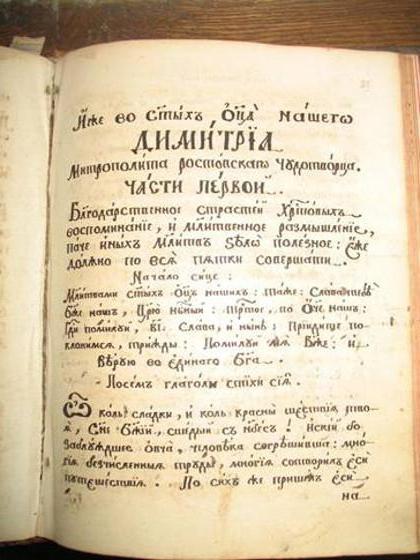 И҆́же во ст҃ы́хъ Ѻ҆ц҃а̀ на́шегѡ
ДИМИ́ТРЇА
Митрополи́та ростовскагѡ Чꙋдотворца.
ЧАСТИ ПЕРВОИ.
Благодарственное страстей Хрⷭ҇товыхъ
воспоминанїе, и мл҃итвенное размышленїе,
паче иныхъ мл҃итвъ ѕѣлѡ полезное: еже
должно по всѧ пѧтки совершати.
Начало сице:
Мл҃итвами ст҃ыхъ ѻц҃ъ нашихъ: таже: Слава тебѣ
бж҃е нашъ, Цр҃ю нб҃ный: Трⷭ҇тое, по Ѻч҃е нашъ:
Гдⷭ҇и помилꙋи, в҃і. Слава, и нынѣ: Прїидите по-
клонимсѧ, трижды: Помилꙋи мѧ Бж҃е: и
Вѣрꙋю во единаго Бг҃а.
Посемъ глаголы стихи сїѧ.
Ѽ коль сладки, и коль красны шествїѧ тво-
ѧ, Сн҃е Бж҃їй, сшедыи съ нб҃есъ! Искій бо
заблꙋждшее овча, человѣка согрѣшивша: мно-
гїѧ безчисленныѧ трꙋды, многїѧ сотворилъ еси
пꙋтешествїѧ. До сихъ же пришелъ еси
на